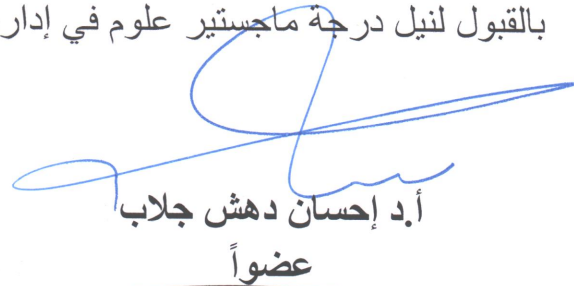 بالقبول لنيل درجة ماجستير علوم في إدار
أ.د إحسان دهش جلاب
عضواً